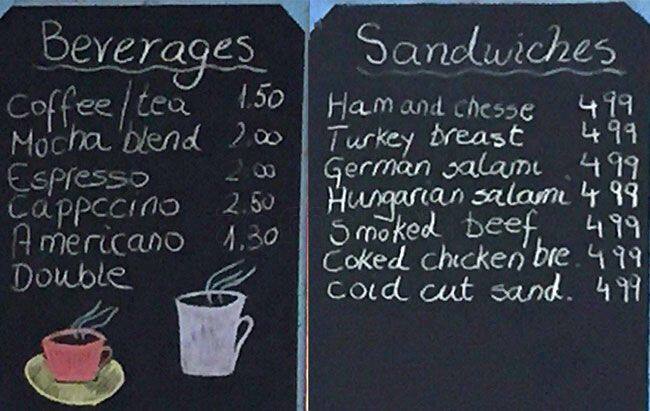 Beverages
Coffee/tea 1.50
Mocha blend 2.00
Espresso 2.00
Cappccino 2.50
Americano 1.30
Double
Sandwiches
Ham and chesse 4 99
Turkey breast 4 99
German salami 4 99
Hungarian salami 4 99
Smoked beef 4 99
Coked chicken bre. 4 99
Cold cut sand. 4 99